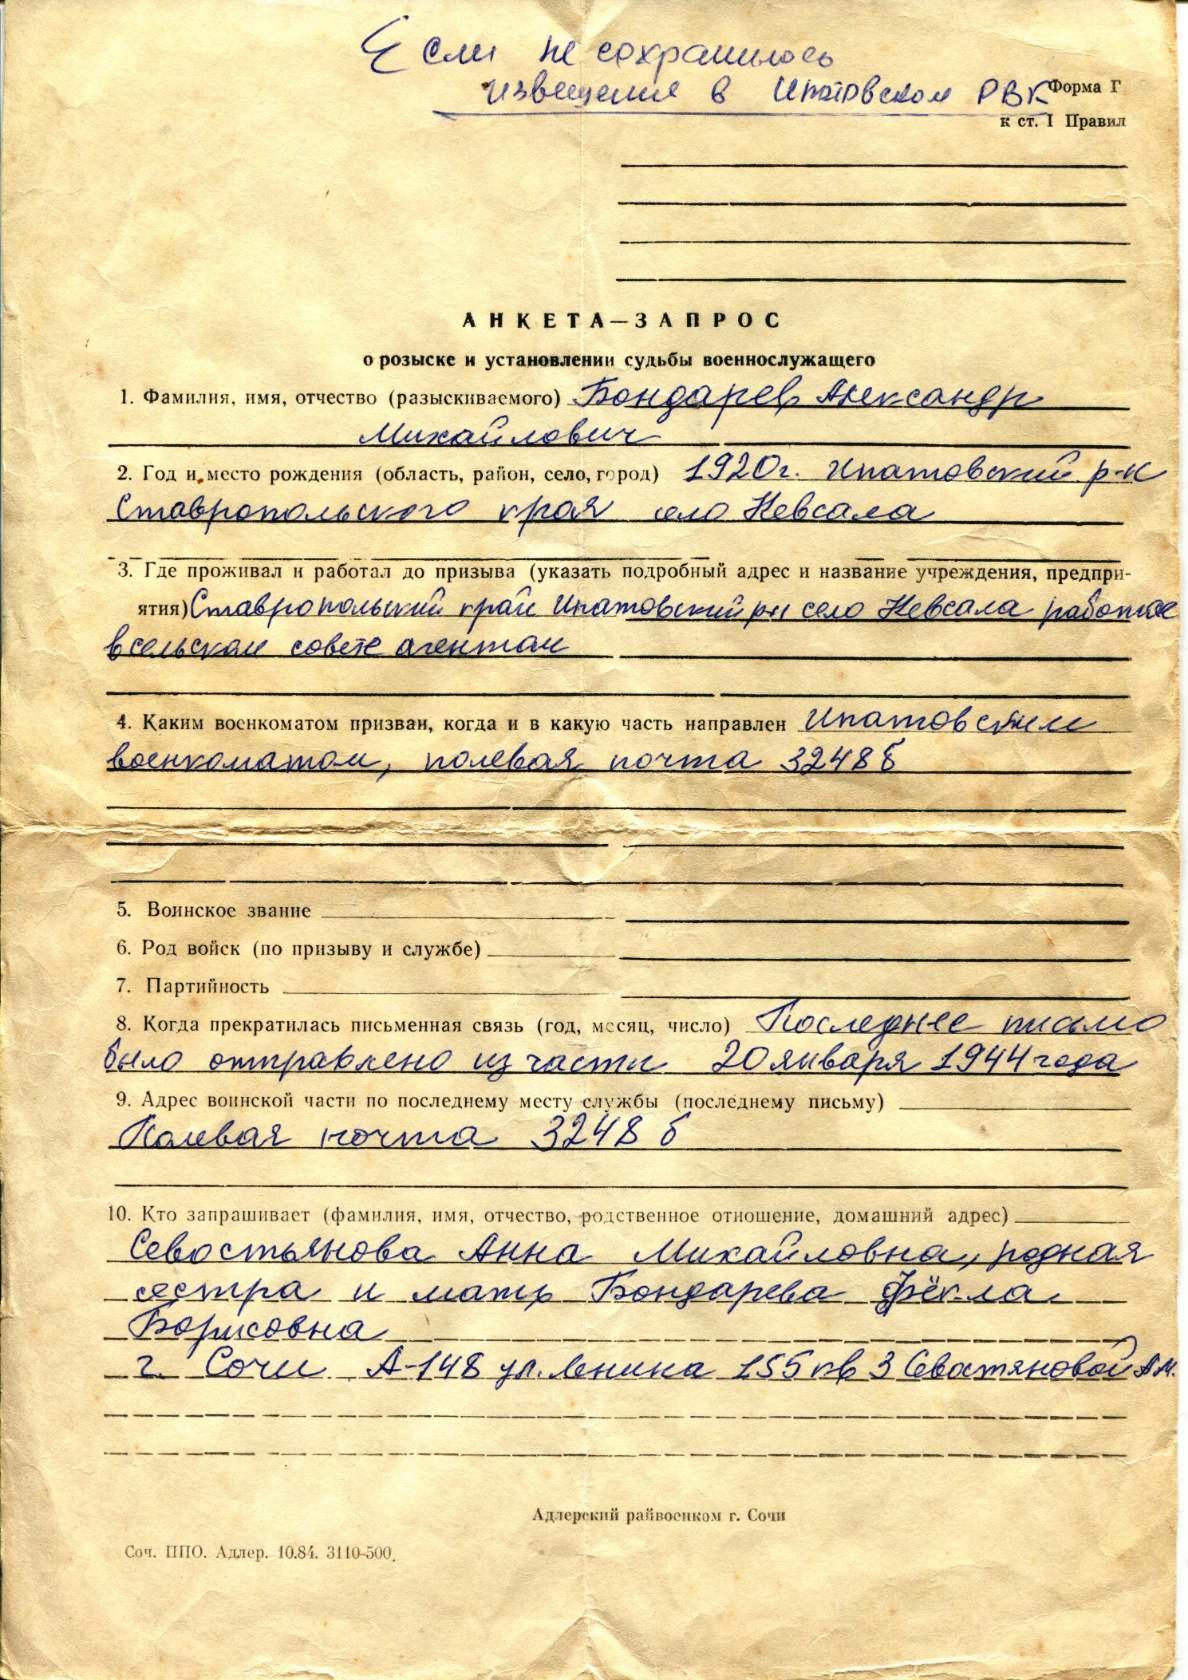 Если не сохранилось
извещения в Ипатовском РВК
Форма Г
к ст. I Правил
АНКЕТА—ЗАПРОС
о розыске и установлении судьбы военнослужащего
1. Фамилия, имя, отчество (разыскиваемого) Бондарев Александр
Михайлович
2. Год и место рождения (область, район, село, город) 1920г. Ипатовский р-н
Ставропольского края село Кевсала
3. Где проживал и работал до призыва (указать подробный адрес и название учреждения, предпри-
ятия) Ставропольский край Ипатовский рн село Кевсала работал
в сельском совете агентом
4. Каким военкоматом призван, когда и в какую часть направлен Ипатовским
военкоматом, полевая почта 3248б
5. Воинское звание
6. Род войск (по призыву и службе)
7. Партийность
8. Когда прекратилась письменная связь (год, месяц, число) Последнее письмо
было отправлено из части 20 января 1944 года
9. Адрес воинской части по последнему месту службы (последнему письму)
Полевая почта 3248 б
10. Кто запрашивает (фамилия, имя, отчество, родственное отношение, домашний адрес)
Севостьянова Анна Михайловна, родная
сестра и мать Бондарева Фёкла
Борисовна
г. Сочи А-148 ул. Ленина 155 кв 3 Севастяновой А.М.
Адлерский райвоенком г. Сочи
Соч. ППО. Адлер. 10.84. 3110-500.